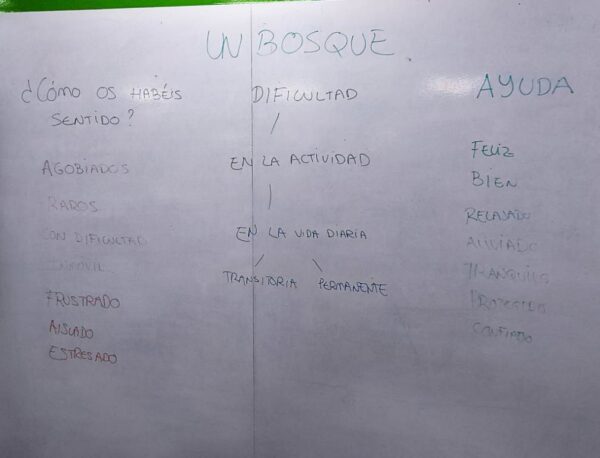 UN BOSQUE
¿CÓMO OS HABÉIS
SENTIDO?
AGOBIADOS
RAROS
CON DIFICULTAD
INMÓVIL
FRUSTRADO
AISLADO
ESTRESADO
DIFICULTAD
EN LA ACTIVIDAD
EN LA VIDA DIARIA
TRANSITORIA PERMANENTE
AYUDA
FELIZ
BIEN
RELAJADO
ALIVIADO
TRANQUILO
PROTEGIDO
CONFIADO